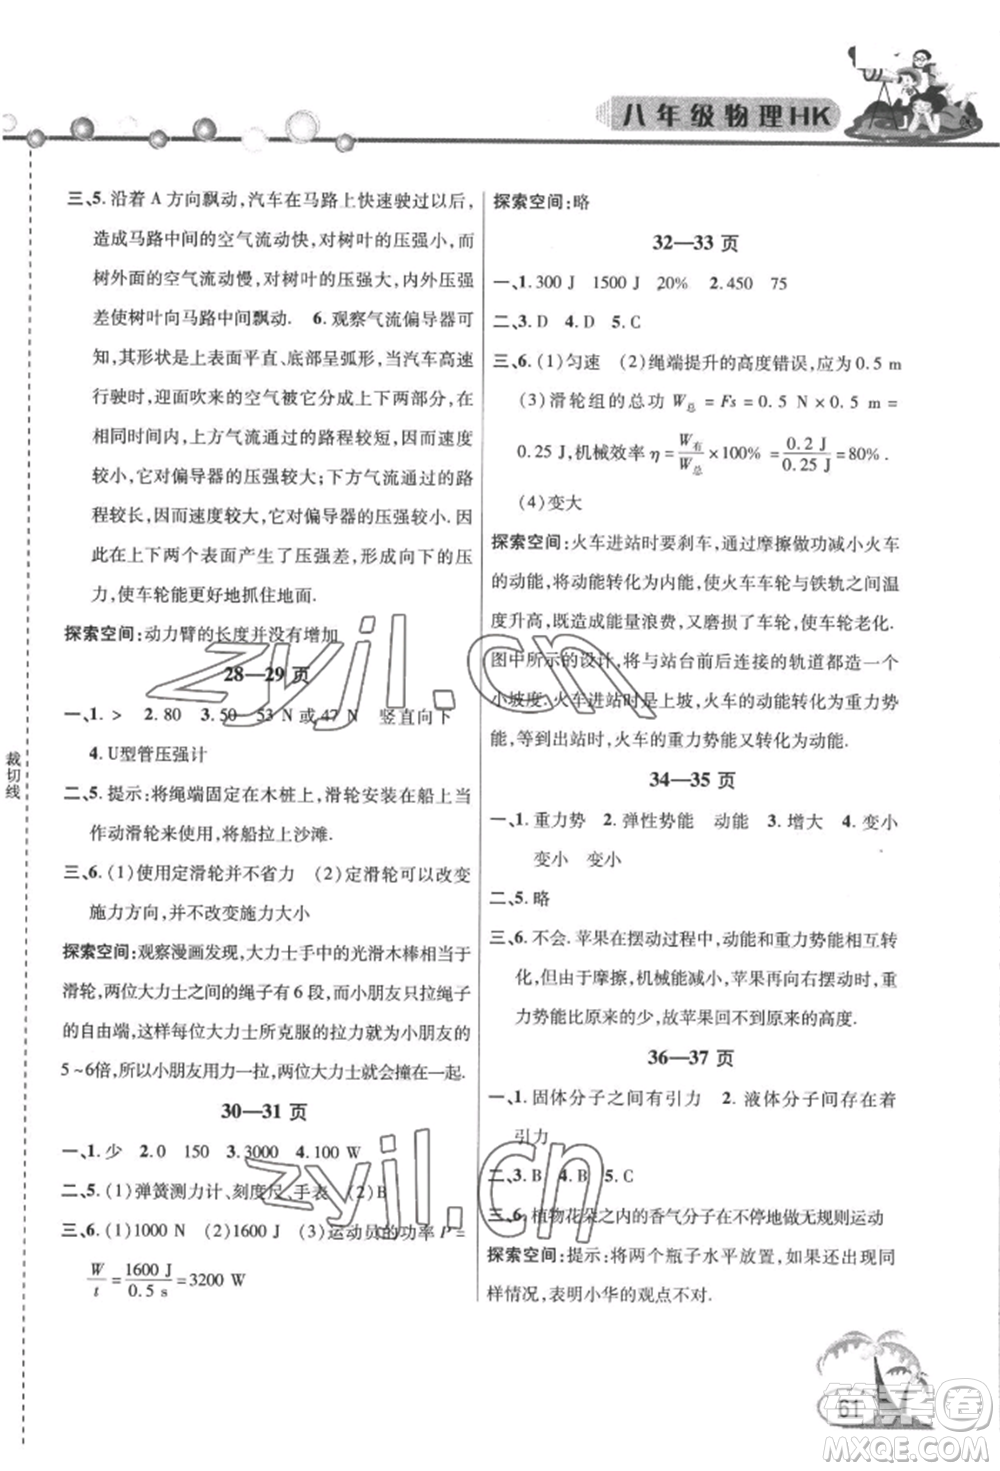 八年级物理HK
三、5. 沿着 A 方向飘动,汽车在马路上快速驶过以后,
造成马路中间的空气流动快,对树叶的压强小,而
树外面的空气流动慢,对树叶的压强大,内外的压强
差使树叶向马路中间飘动. 6. 观察气流偏导器可
知,其形状是上表面平直、底部呈弧形,当汽车高速
行驶时,迎面吹来的空气被它分成上下两部分,在
相同时间内,上方气流通过的路程较短,因而速度
较小,它对偏导器的压强较大;下方气流通过的路
程较长,因而速度较大,它对偏导器的压强较小. 因
此在上下两个表面产生了压强差,形成向下的压
力,使车轮能更好地抓住地面.
探索空间:动力臂的长度并没有增加
28—29 页
一、1. > 2. 80 3. 50 53 N 或 47 N 竖直向下
4. U型管压强计
二、5. 提示:将绳端固定在木桩上,滑轮安装在船上当
作动滑轮来使用,将船拉上沙滩.
三、6. (1)使用定滑轮并不省力 (2)定滑轮可以改变
施力方向,并不改变施力大小
探索空间:观察漫画发现,大力士手中的光滑木棒相当于
滑轮,两位大力士之间的绳子有 6 段,而小朋友只拉绳子
的自由端,这样每位大力士所克服的拉力就为小朋友的
5 ~6倍,所以小朋友用力一拉,两位大力士就会撞在一起.
30—31 页
一、1. 少 2. 0 150 3. 3000 4. 100 W
二、5. (1)弹簧测力计、刻度尺、手表 (2)B
三、6. (1)1000 N (2)1600 J (3)运动员的功率 P =
W/t = 1600 J/0.5 s = 3200 W
探索空间:略
32—33 页
一、1. 300 J 1500 J 20% 2. 450 75
二、3. D 4. D 5. C
三、6. (1)匀速 (2)绳端提升的高度错误,应为 0.5 m
(3)滑轮组的总功 W总 = Fs = 0.5 N × 0.5 m =
0.25 J,机械效率 η = W有/W总 × 100% = 0.2 J/0.25 J = 80% .
(4)变大
探索空间:火车进站时要刹车,通过摩擦做功减小火车
的动能,将动能转化为内能,使火车车轮与铁轨之间温
度升高,造成能量浪费,又磨损了车轮,使车轮老化.
图中所示的设计,将与站台前后连接的轨道设置一个
小坡度. 火车进站时是上坡,火车的动能转化为重力势
能,等到出站时,火车的重力势能又转化为动能.
34—35 页
一、1. 重力势 2. 弹性势能 动能 3. 增大 4. 变小
变小 变小
二、5. 略
三、6. 不会. 苹果在摆动过程中,动能和重力势能相互转
化,但由于摩擦,机械能减小,苹果再向右摆动时,重
力势能比原来的少,故苹果回不到原来的高度.
36—37 页
一、1. 固体分子之间有引力 2. 液体分子间存在着
引力
二、3. B 4. B 5. C
三、6. 植物花朵之内的香气分子在不停地做无规则运动
探索空间:提示:将两个瓶子水平放置,如果还出现同
样情况,表明小华的观点不对.
裁切线
61
zyjl.cn
zyjl.cn
答案卷
MXQE.COM